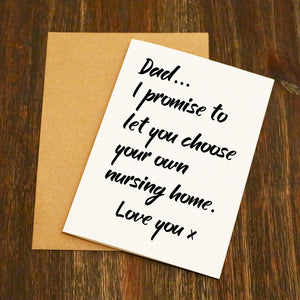 Dad...
I promise to
let you choose
your own
nursing home.
Love you x